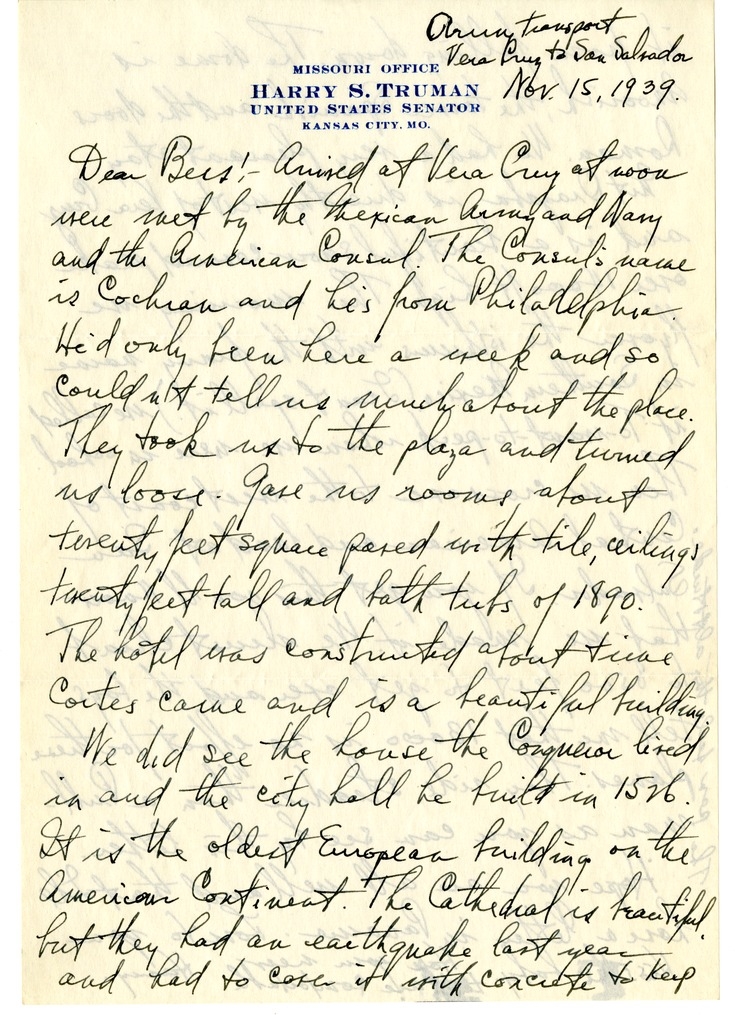 Army transport
Vera Cruz to San Salvador
Nov. 15, 1939.
MISSOURI OFFICE
HARRY S. TRUMAN
UNITED STATES SENATOR
KANSAS CITY, MO.
Dear Bess:- Arrived at Vera Cruz at noon
were met by the Mexican Army and Navy
and the American Consul. The Consul's name
is Cochran and he's from Philadelphia.
He'd only been here a week and so
couldn't tell us much about the place.
They took us to the plaza and turned
us loose. Gave us rooms about
twenty feet square paved with tile, ceilings
twenty feet tall and bath tubs of 1890.
The hotel was constructed about time
Cortes came and is a beautiful building.
We did see the house the Conqueror lived
in and the city hall he built in 1526.
It is the oldest European building on the
American Continent. The Cathedral is beautiful,
but they had an earthquake last year
and had to cover it with concrete to keep